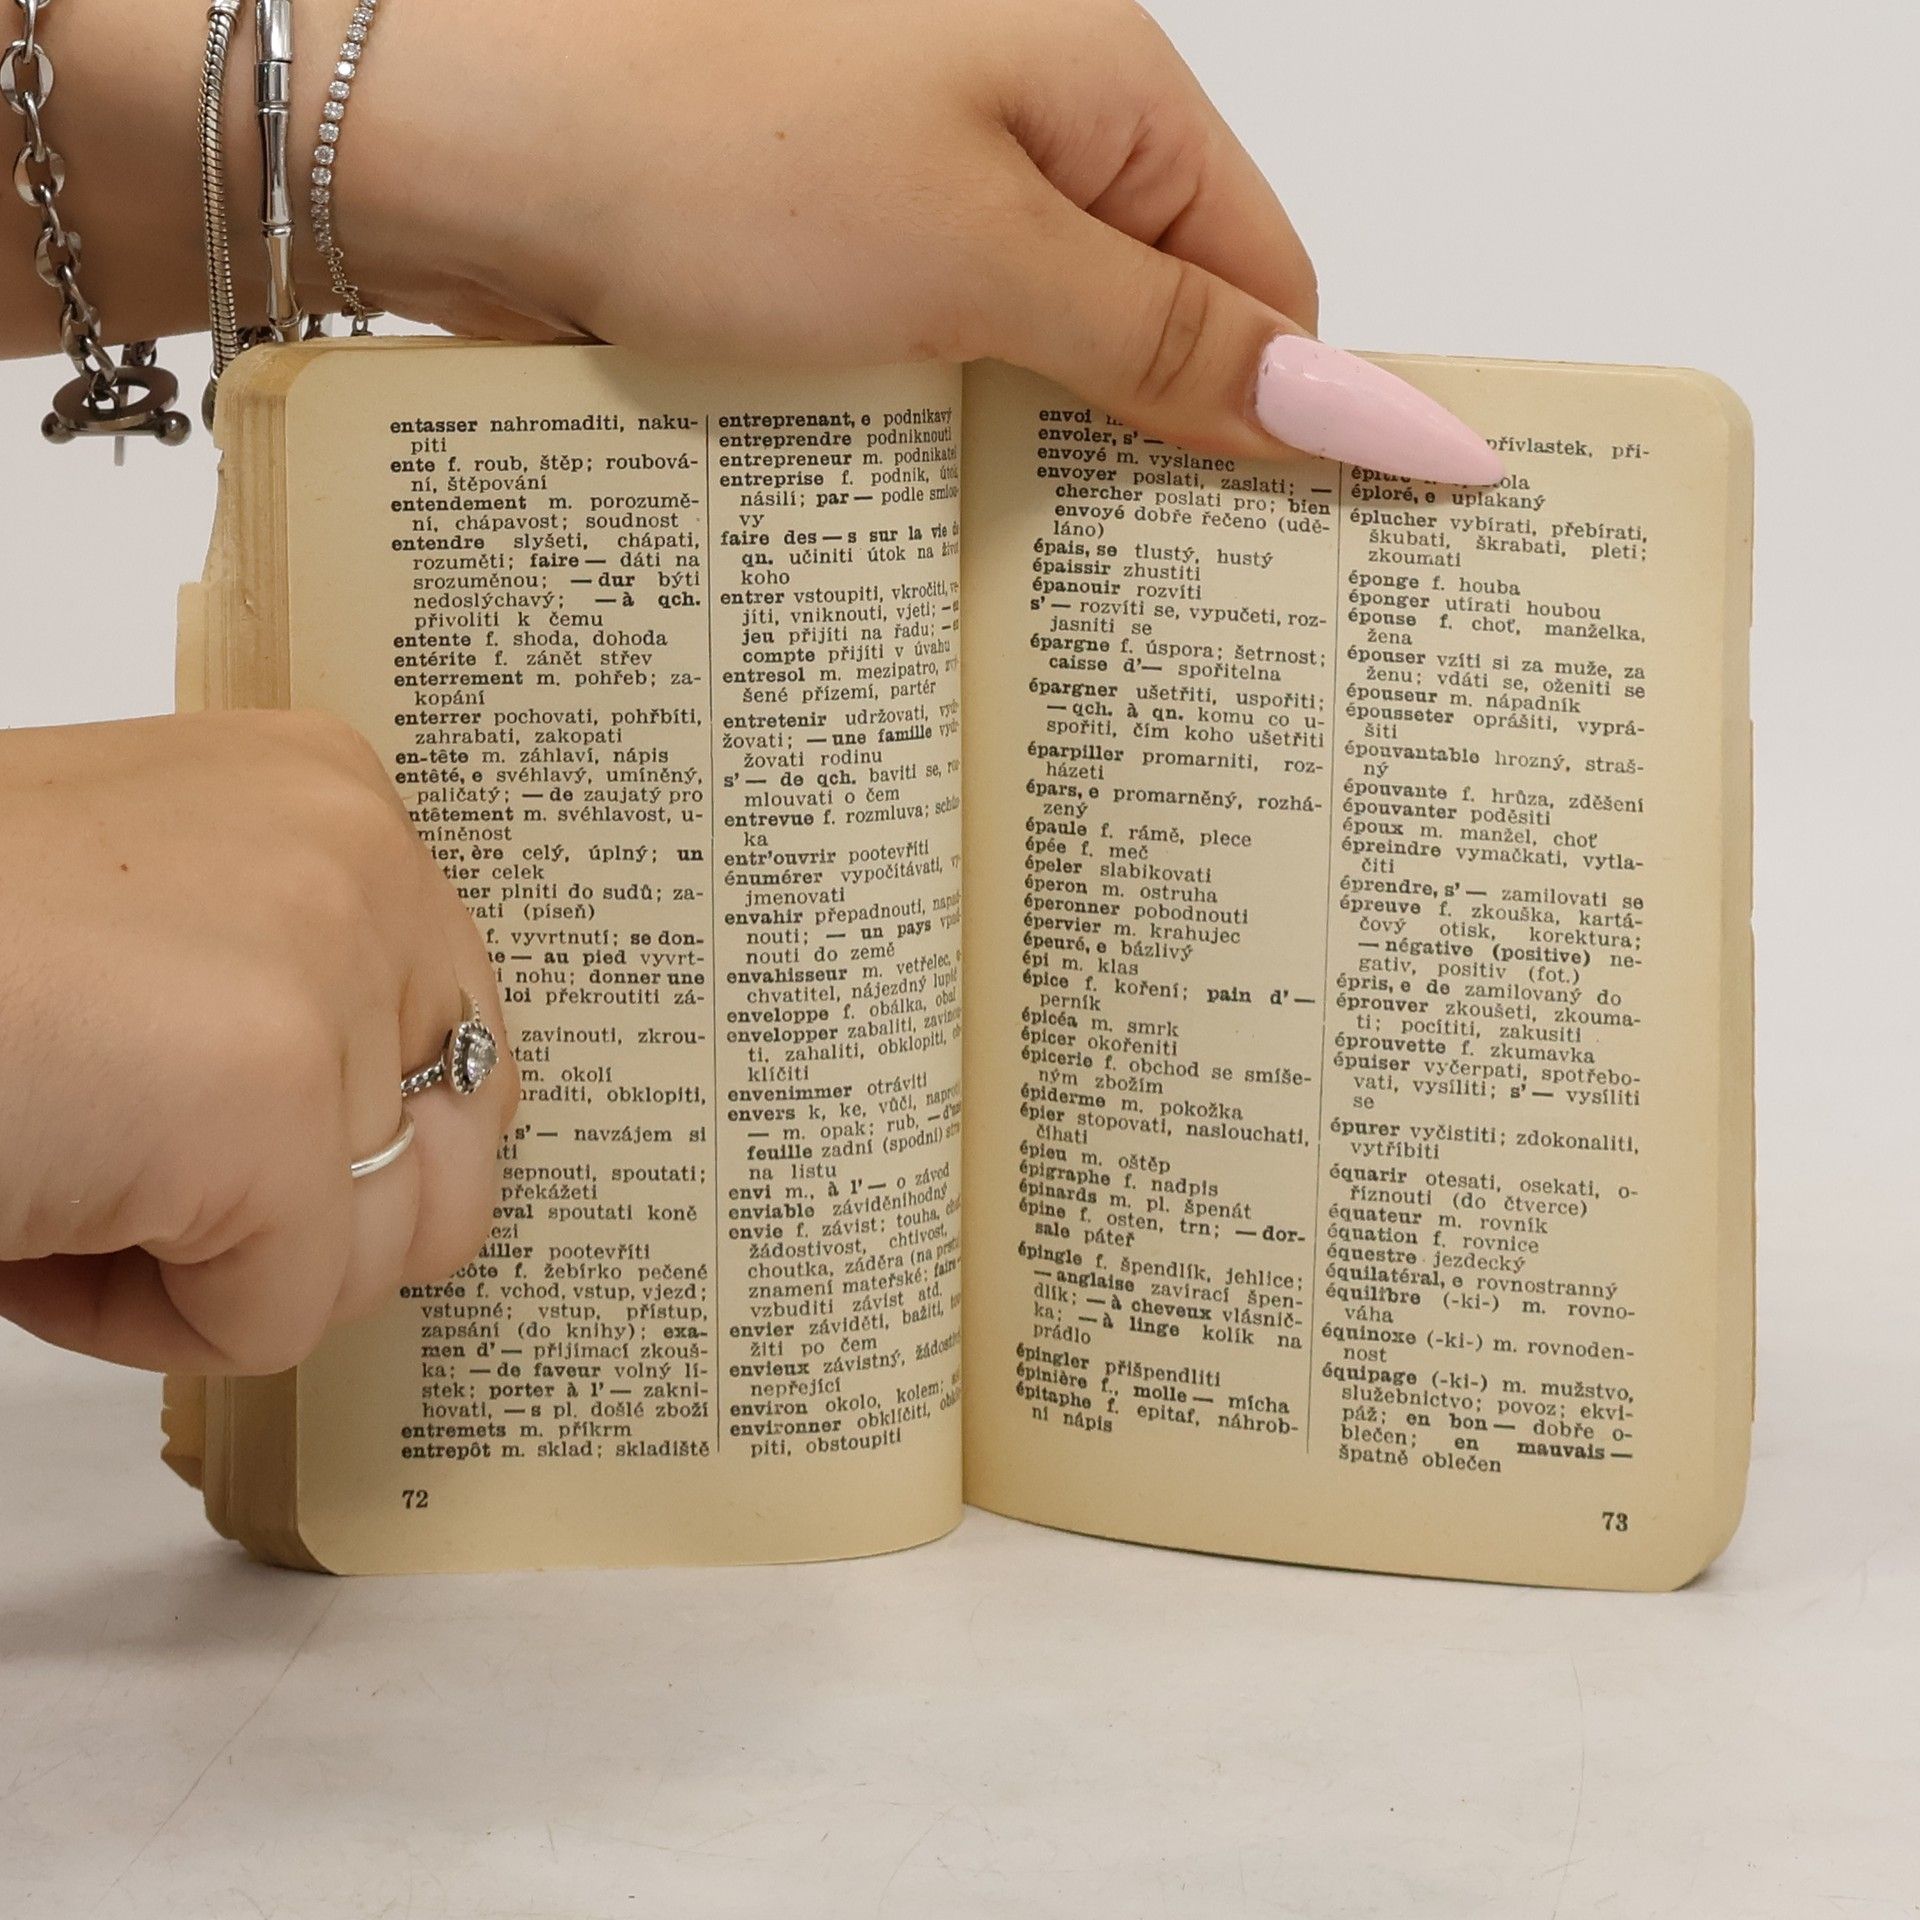 entasser nahromaditi, naku-
piti
ente f. roub, štěp; roubová-
ní, štěpování
entendement m. porozumě-
ní, chápavost; soudnost
entendre slyšeti, chápati,
rozuměti; faire — dáti na
srozuměnou; — dur býti
nedoslýchavý; — à qch.
přivoliti k čemu
entente f. shoda, dohoda
entérite f. zánět střev
enterrement m. pohřeb; za-
kopání
enterrer pochovati, pohřbíti,
zahrabati, zakopati
en-tête m. záhlaví, nápis
entêté, e svéhlavý, umíněný,
paličatý; — de zaujatý pro
m. svéhlavost, u-
míněnost
celý, úplný; un
celek
plniti do sudů; za-
(píseň)
f. vyvrtnutí; se don-
— au pied vyvrt-
nohu; donner une
loi překroutiti zá-
zavinouti, zkrou-
m. okolí
obklopiti,
s' — navzájem si
sepnouti, spoutati;
překážeti
spoutati koně
pootevříti
f. žebírko pečené
entrée f. vchod, vstup, vjezd;
vstupné; vstup, přístup,
zapsání (do knihy); exa-
men d' — přijímací zkouš-
ka; — de faveur volný lí-
stek; porter à l' — zakni-
hovati, — s pl. došlé zboží
entremets m. příkrm
entrepôt m. sklad; skladiště
72
entreprenant, e podnikavý
entreprendre podniknouti
entrepreneur m. podnikatel
entreprise f. podnik, útok,
násilí; par — podle smlou-
vy
faire des — s sur la vie de
qn. učiniti útok na život
koho
entrer vstoupiti, vkročiti, ve-
jíti, vniknouti, vjeti; —
jeu přijíti na řadu; —
compte přijíti v úvahu
entresol m. mezipatro, zvý-
šené přízemí, partér
entretenir udržovati, vydr-
žovati; — une famille vydr-
žovati rodinu
s' — de qch. baviti se, roz-
mlouvati o čem
entrevue f. rozmluva; schůz-
ka
entr'ouvrir pootevříti
énumérer vypočítávati, vy-
jmenovati
envahir přepadnouti, napad-
nouti; — un pays vpad-
nouti do země
envahisseur m. vetřelec,
chvatitel, nájezdný lupič
enveloppe f. obálka, obal
envelopper zabaliti, zavinou-
ti, zahaliti, obklopiti, ob-
klíčiti
envenimmer otráviti
envers k, ke, vůči, naproti
— m. opak; rub, — d'une
feuille zadní (spodní) stra-
na listu
envi m., à l' — o závod
enviable záviděníhodný
envie f. závist; touha,
žádostivost, chtivost,
choutka, záděra (na prstu)
znamení mateřské; faire —
vzbuditi závist atd.
envier záviděti, bažiti, tou-
žiti po čem
envieux závistný, žádostivý
nepřející
environ okolo, kolem;
environner obklíčiti, obklo-
piti, obstoupiti
envoi
envoler, s' —
envoyé m. vyslanec
envoyer poslati, zaslati; —
chercher poslati pro; bien
envoyé dobře řečeno (udě-
láno)
épais, se tlustý, hustý
épaissir zhustiti
épanouir rozvíti
s' — rozvíti se, vypučeti, roz-
jasniti se
épargne f. úspora; šetrnost;
caisse d'— spořitelna
épargner ušetřiti, uspořiti;
— qch. à qn. komu co u-
spořiti, čím koho ušetřiti
éparpiller promarniti, roz-
házeti
épars, e promarněný, rozhá-
zený
épaule f. rámě, plece
épée f. meč
épeler slabikovati
éperon m. ostruha
éperonner pobodnouti
épervier m. krahujec
épeuré, e bázlivý
épi m. klas
épice f. koření; pain d' —
perník
épicéa m. smrk
épicer okořeniti
épicerie f. obchod se smíše-
ným zbožím
épiderme m. pokožka
épier stopovati, naslouchati,
číhati
épieu m. oštěp
épigraphe f. nadpis
épinards m. pl. špenát
épine f. osten, trn; — dor-
sale páteř
épingle f. špendlík, jehlice;
— anglaise zavírací špen-
dlík; — à cheveux vlásnič-
ka; — à linge kolík na
prádlo
épingler přišpendliti
épinière f., molle — mícha
épitaphe f. epitaf, náhrob-
ní nápis
přívlastek, pří-
éploré, e uplakaný
éplucher vybírati, přebírati,
škubati, škrabati, pleti;
zkoumati
éponge f. houba
éponger utírati houbou
épouse f. choť, manželka,
žena
épouser vzíti si za muže, za
ženu; vdáti se, oženiti se
épouseur m. nápadník
épousseter oprášiti, vyprá-
šiti
épouvantable hrozný, straš-
ný
épouvante f. hrůza, zděšení
épouvanter poděsiti
époux m. manžel, choť
épreindre vymačkati, vytla-
čiti
éprendre, s' — zamilovati se
épreuve f. zkouška, kartá-
čový otisk, korektura;
— négative (positive) ne-
gativ, positiv (fot.)
épris, e de zamilovaný do
éprouver zkoušeti, zkouma-
ti; pocítiti, zakusiti
éprouvette f. zkumavka
épuiser vyčerpati, spotřebo-
vati, vysíliti; s' — vysíliti
se
épurer vyčistiti; zdokonaliti,
vytříbiti
équarir otesati, osekati, o-
říznouti (do čtverce)
équateur m. rovník
équation f. rovnice
équestre jezdecký
équilatéral, e rovnostranný
équilibre (-ki-) m. rovno-
váha
équinoxe (-ki-) m. rovnoden-
nost
équipage (-ki-) m. mužstvo,
služebnictvo; povoz; ekvi-
páž; en bon — dobře o-
blečen; en mauvais —
špatně oblečen
73